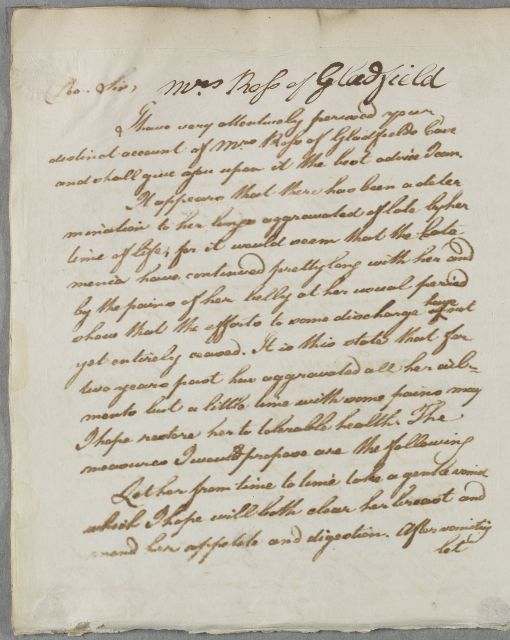 Mrs Ross of Gladfield
Sir,
I have very attentively perused your
distinct account of Mrs Ross of Gladfields Case
and shall give upon it the best advice I can.
It appears that there has been a deter-
mination to her lungs aggravated of late by her
time of life; for it would seem that the Cata-
menia have continued pretty long with her and
by the pains of her belly at her usual period
shows that the efforts to some discharge have not
yet entirely ceased. It is this state that for
two years past has aggravated all her ail-
ments but a little time with some pains may
I hope restore her to tolerable health. The
measures I would propose are the following
Let her from time to time take a gentle vomit
which I hope will both clear her breast and
mend her appetite and digestion. After vomiting
let